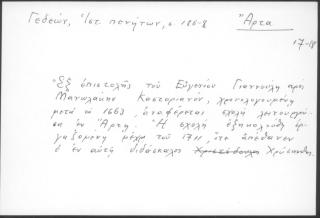 Γεδεών, Ἱστ. πενήτων, σ 186-8
Ἄρτα
17-18
Ἐξ ἐπιστολῆς τοῦ Εὐγενίου Γιαννούλη πρὸς
Μανωλάκην Καστοριανόν, χρονολογουμένη
μετὰ τὸ 1663, ἀναφέρεται σχολὴ λειτουργοῦ-
σα ἐν Ἄρτῃ. Ἡ σχολὴ ἐξηκολούθη ἐρ-
γαζομένη μέχρι τοῦ 1711, ὅτε ἀπέθανεν
ὁ ἐν αὐτῇ διδάσκαλος Χρύσανθος.